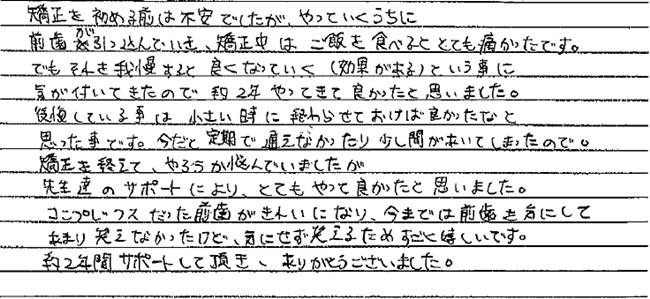 矯正を初める前は不安でしたが、やっていくうちに
前歯が引っ込んでいき、矯正中は ご飯を食べるととても痛かったです。
でも それを我慢すると 良くなっていく (効果がある) という事に
気が付いてきたので 約2年 やってきて良かったと思いました。
後悔している事は 小さい時に終わらせておけば良かったなと
思った事です。今だと定期で通えなかったり少し間があいてしまったので。
矯正を終えて、やろうか悩んでいましたが
先生達のサポートにより、とてもやって良かったと思いました。
コンプレックスだった前歯がきれいになり、今までは前歯を気にして
あまり笑えなかったけど、気にせず笑えるためすごく嬉しいです。
約2年間サポートして頂き、ありがとうございました。